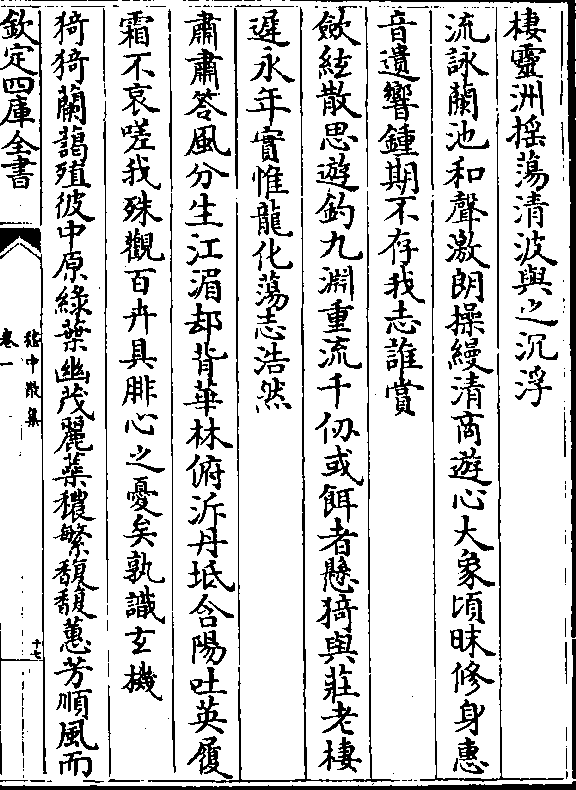 棲靈洲揺蕩清波與之沉浮
流詠蘭池和聲激朗操縵清商遊心大象頃昧修身惠
音遺響鍾期不存我志誰賞
歛絃散思遊釣九淵重流千仞或餌者懸猗與莊老棲
遲永年實惟龍化蕩志浩然
肅肅苓風分生江湄却背華林俯泝丹坻含陽吐英履
霜不哀嗟我殊觀百卉具腓心之憂矣孰識玄機
猗猗蘭藹殖彼中原緑葉幽茂麗蘂穠繁馥馥蕙芳順風而
欽定四庫全書
嵇中散集
卷一
十七